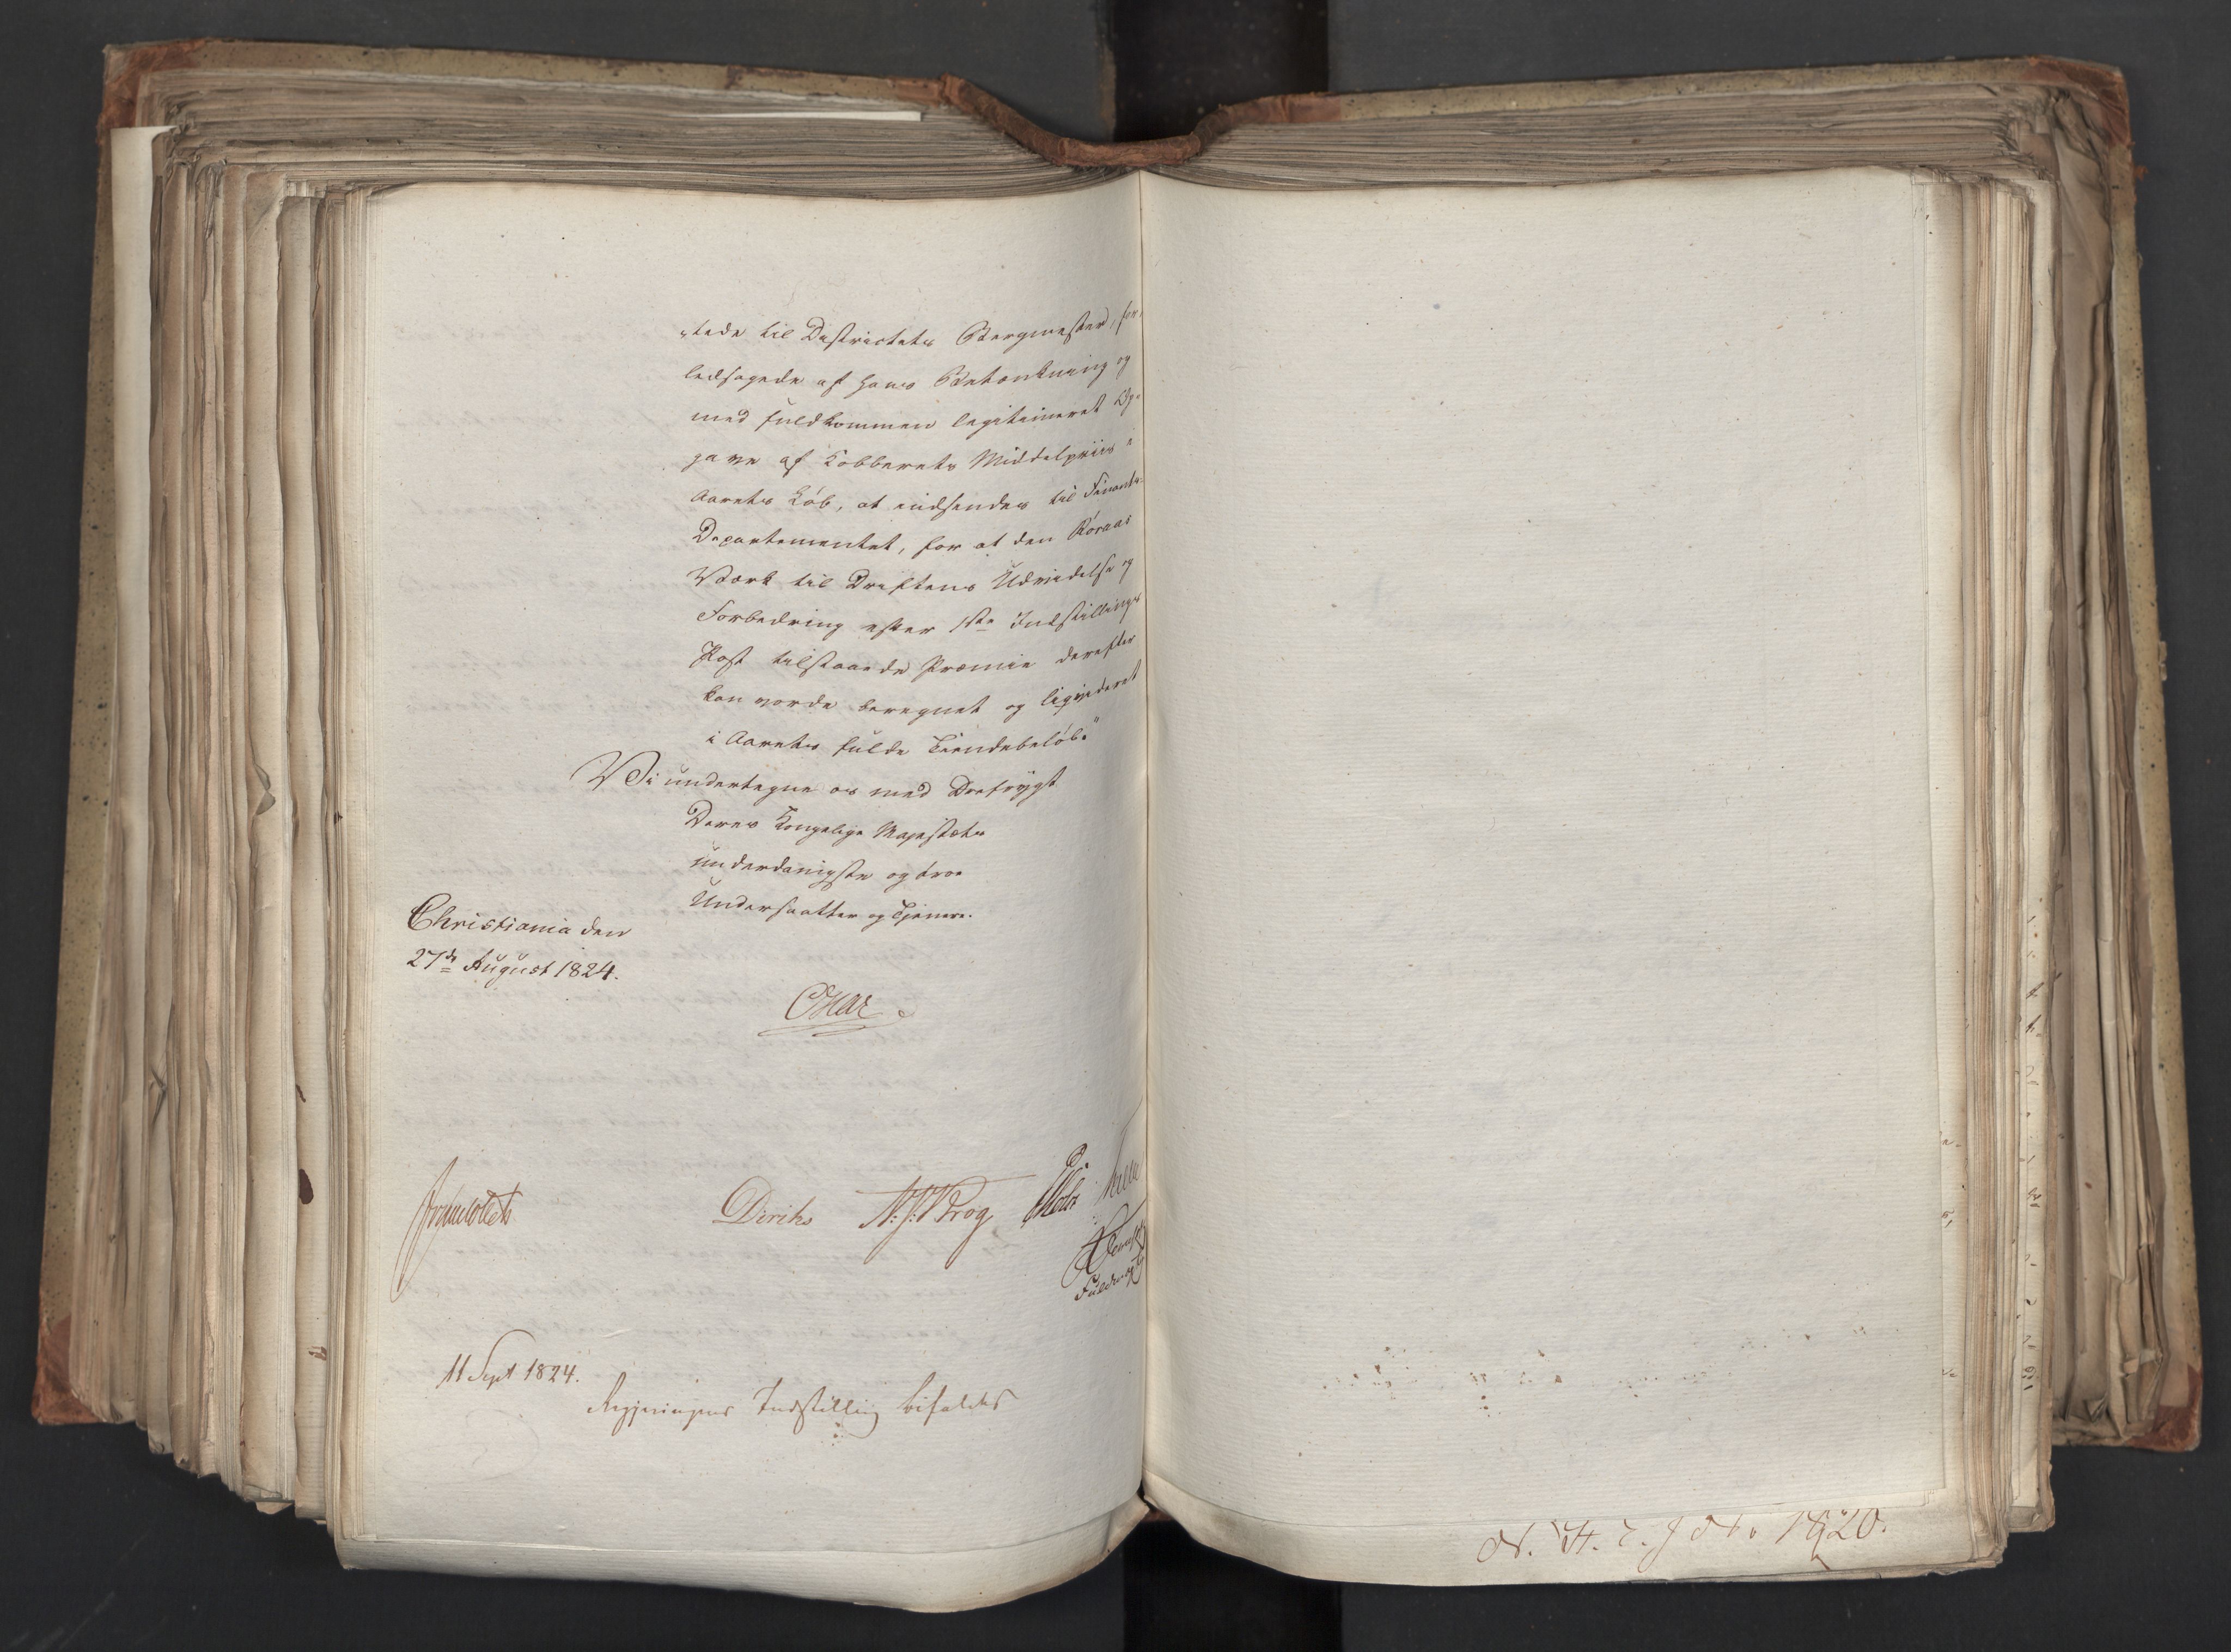 „stede til Districtets Bergmester, for„
ledsagede af hans Betænkning og
med fuldkommen legitimeret Op„
gave af Kobberets Middelpriis i
Aarets Løb, at indsendes til Finants„
Departementet, for at den Røraas
Værk til Driftens Udvidelse og
Forbedring efter 1ste Indstillings
Post tilstaaede Præmie derefter
kan vorde beregnet og liqvideret
i Aarets fulde Tiendebeløb."
Vi undertegne os med Dybfrygt
Deres Kongelige Majestæts
underdanigste og troe
Undersaatter og Tjenere.
Christiania den
27de August 1824.
Diriks N: J: Krog Motz
Fuldmægtig
11 Sept 1824.
Regjeringens Indstilling bifaldes
1820.